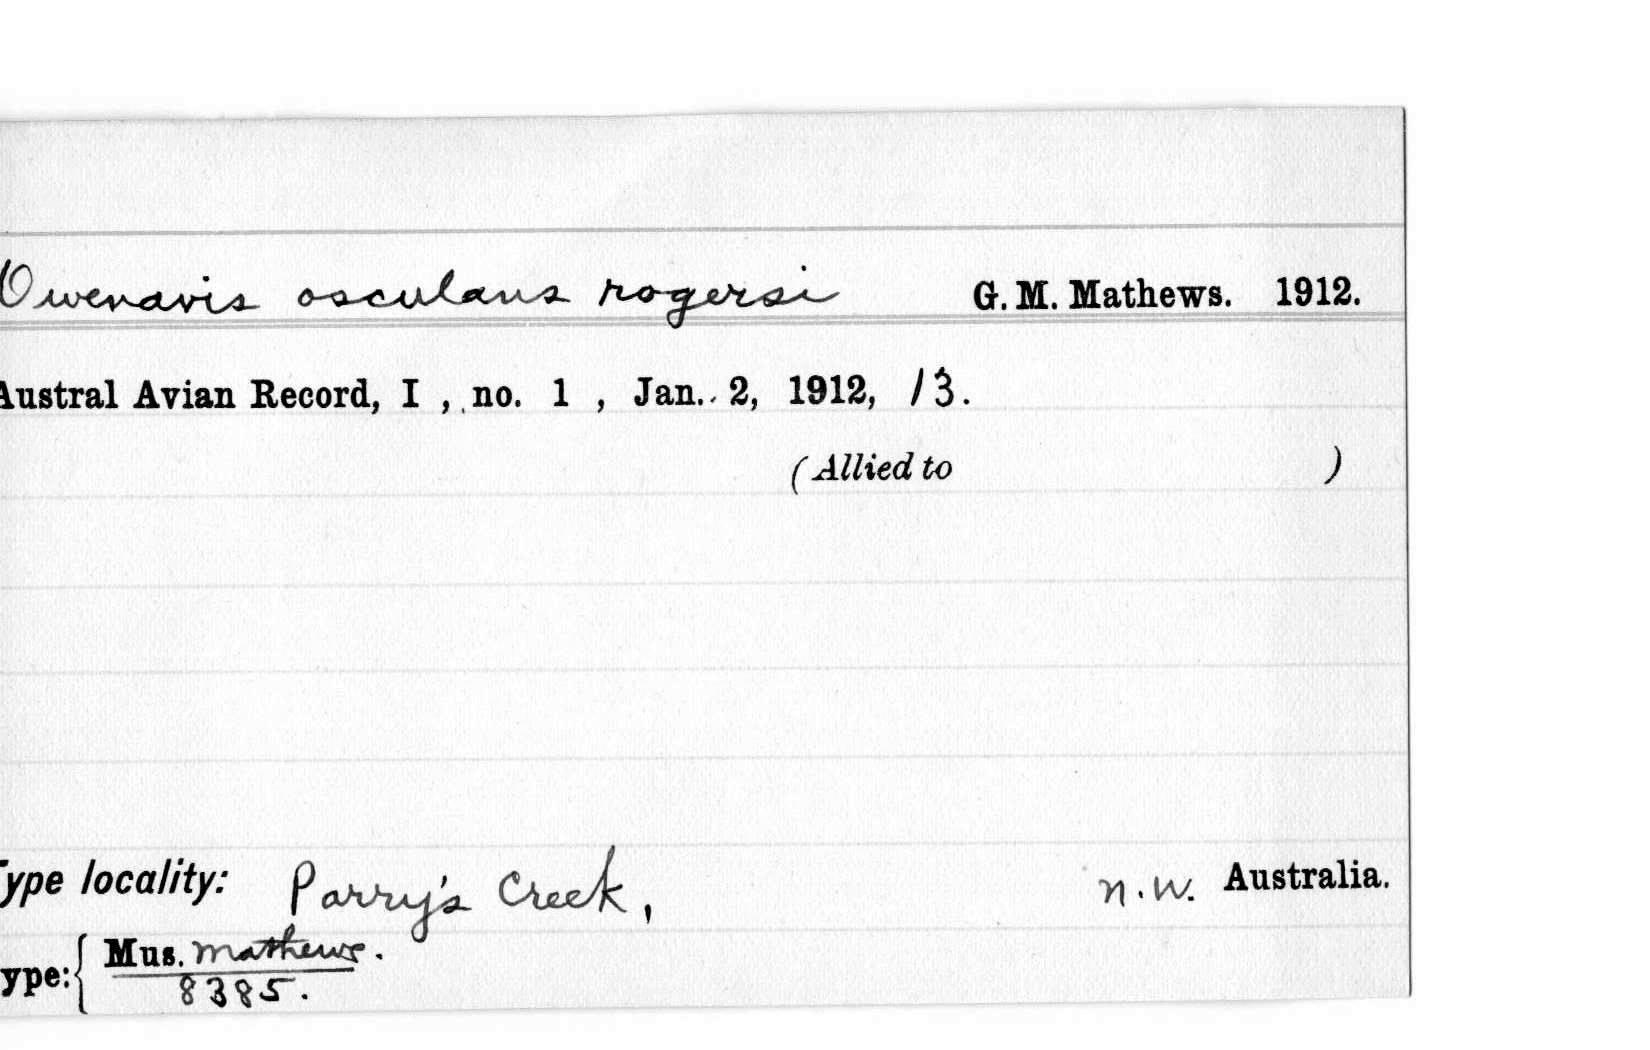 Owenavis osculans rogersi G. M. Mathews. 1912.
Austral Avian Record, I , no. 1 , Jan. 2, 1912, 13.
(Allied to )
Type locality: Parry's Creek, n.w. Australia.
ype: { Mus. mathews.
8385.